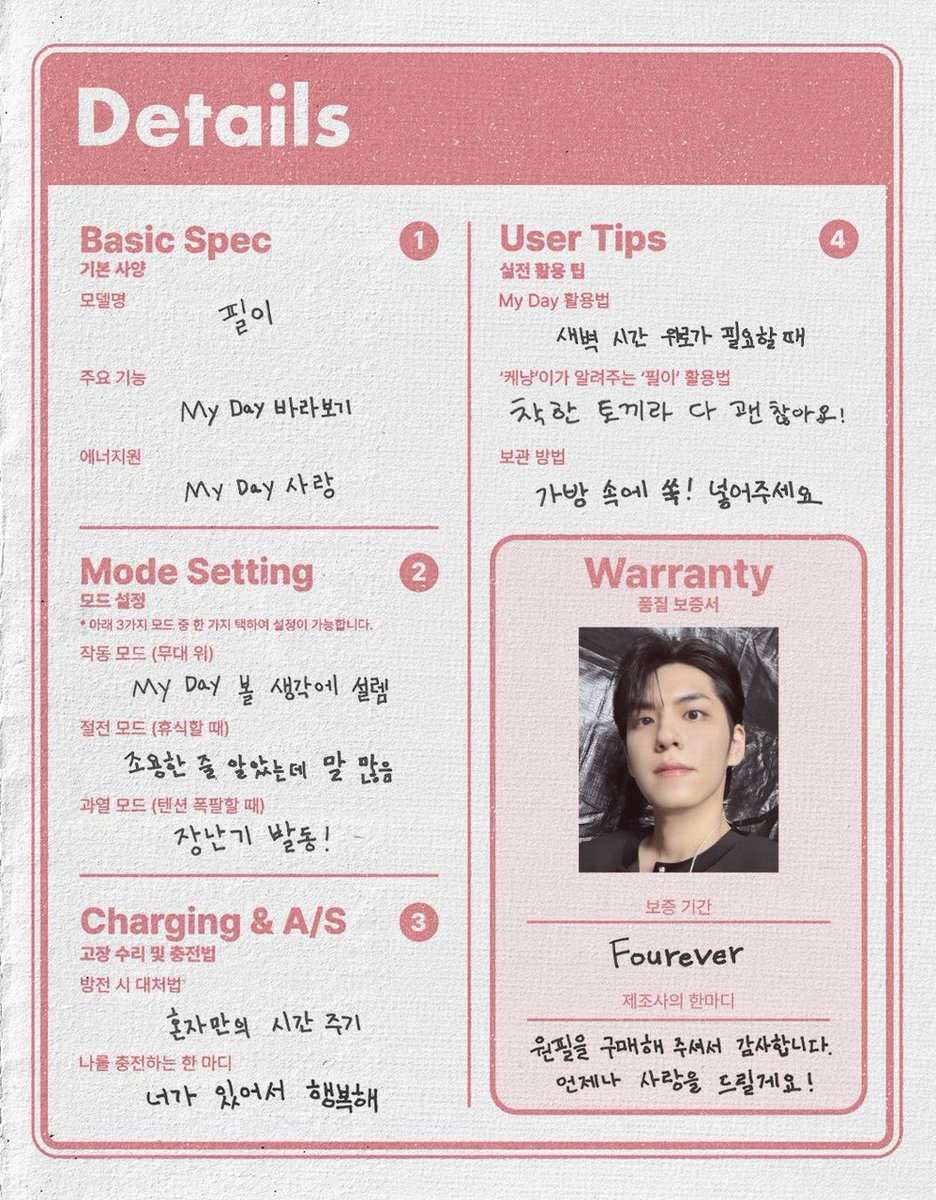 Details
Basic Spec
1
기본 사양
모델명
필이
주요 기능
My Day 바라보기
에너지원
My Day 사랑
Mode Setting
2
모드 설정
* 아래 3가지 모드 중 한 가지 택하여 설정이 가능합니다.
작동 모드 (무대 위)
My Day 볼 생각에 설렘
절전 모드 (휴식할 때)
조용한 줄 알았는데 말 많음
과열 모드 (텐션 폭팔할 때)
장난기 발동!
Charging & A/S
3
고장 수리 및 충전법
방전 시 대처법
혼자만의 시간 주기
나를 충전하는 한 마디
너가 있어서 행복해
User Tips
4
실전 활용 팁
My Day 활용법
새벽 시간 위로가 필요할 때
‘케냥’이가 알려주는 ‘필이’ 활용법
착한 토끼라 다 괜찮아요!
보관 방법
가방 속에 쏙! 넣어주세요
Warranty
품질 보증서
보증 기간
Fourever
제조사의 한마디
원필을 구매해 주셔서 감사합니다.
언제나 사랑을 드릴게요!